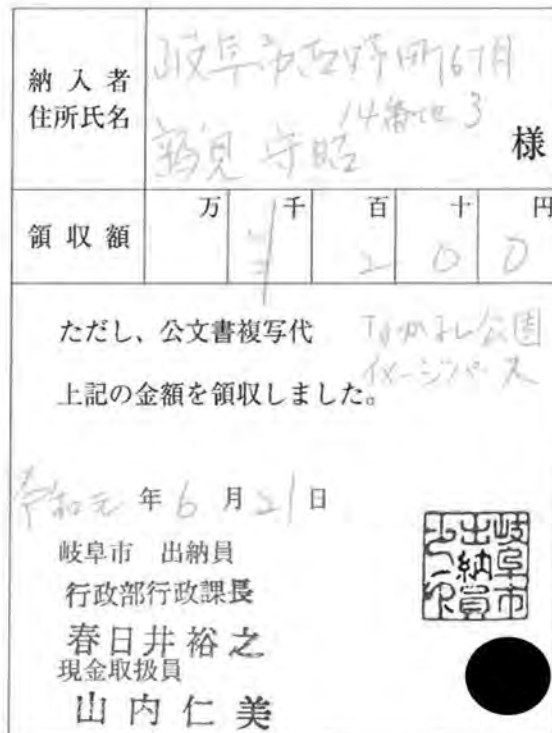 納入者
住所氏名
岐阜市
町6丁目
14番地3
守昭
様
領収額
万 千 百 十 円
¥ 2 0 0
ただし、公文書複写代
公園
イメージパース
上記の金額を領収しました。
令和元年6月21日
岐阜市 出納員
行政部行政課長
春日井裕之
現金取扱員
山内仁美
岐阜市
出納員